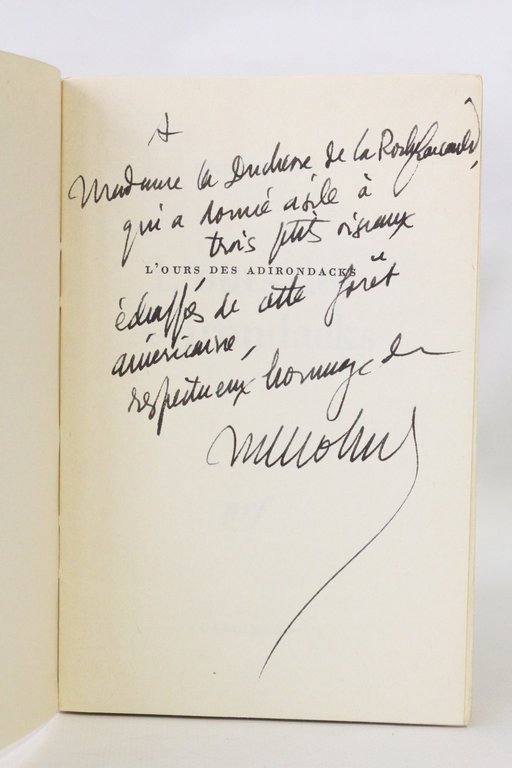 A
Madame la Duchesse de la Rochefoucauld,
qui a donné asile à
trois ptits oiseaux
L'OURS DES ADIRONDACKS
échappés de cette forêt
américaine,
respectueux hommage de
nrf